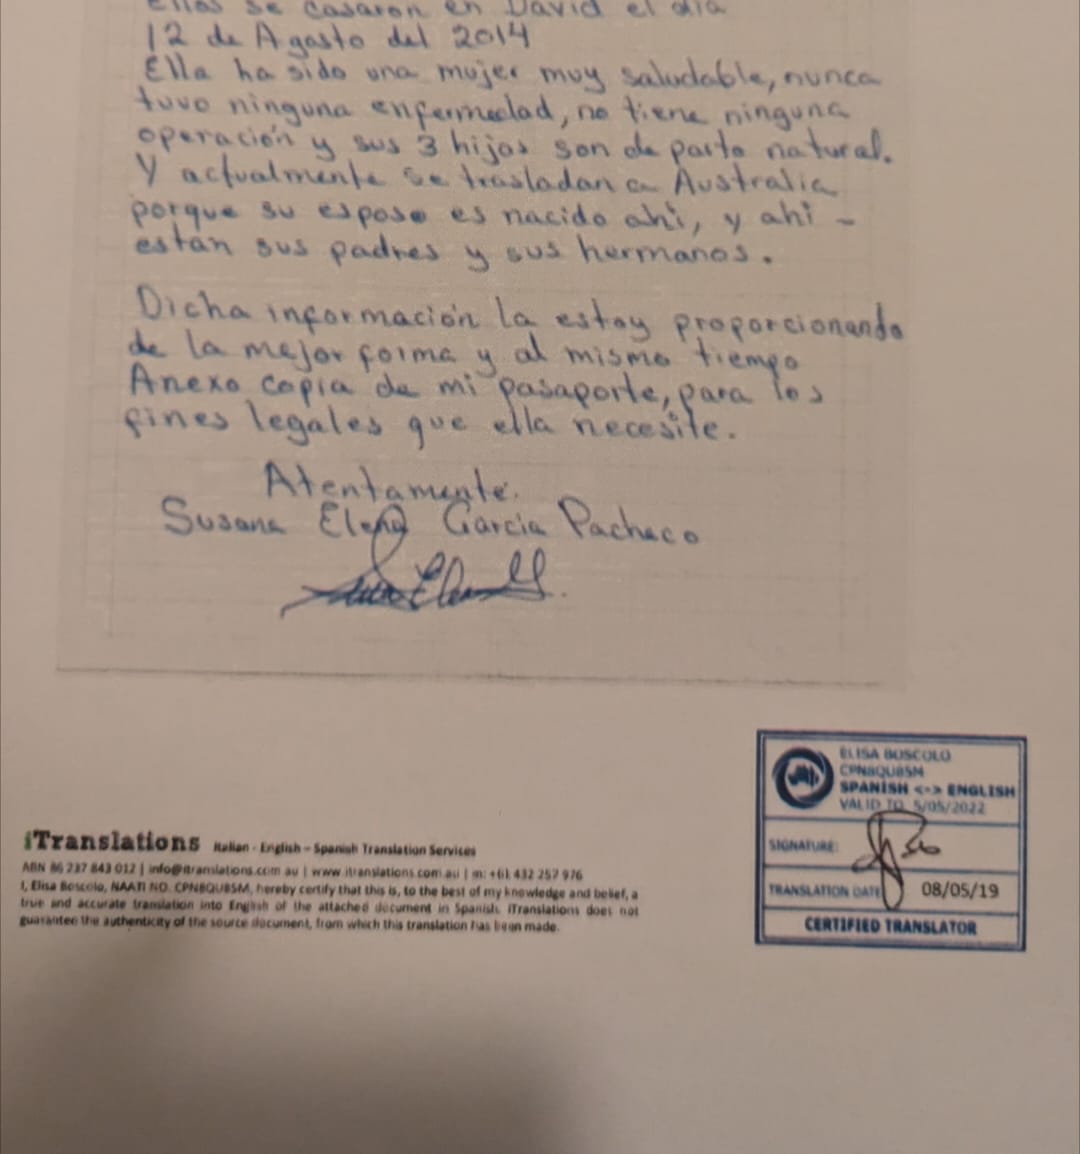 Ellos se casaron en David el día
12 de Agosto del 2014
Ella ha sido una mujer muy saludable, nunca
tuvo ninguna enfermedad, no tiene ninguna
operación y sus 3 hijos son de parto natural.
Y actualmente se trasladan a Australia
porque su esposo es nacido ahi, y ahi -
están sus padres y sus hermanos.
Dicha información la estoy proporcionando
de la mejor forma y al mismo tiempo
Anexo copia de mi pasaporte, para los
fines legales que ella necesite.
Atentamente.
Susana Elena Garcia Pacheco
ELISA BOSCOLO
CPN8QU85M
SPANISH <-> ENGLISH
VALID TO 5/05/2022
SIGNATURE:
TRANSLATION DATE
08/05/19
CERTIFIED TRANSLATOR
iTranslations Italian - English - Spanish Translation Services
ABN 86 237 843 012 | info@itranslations.com.au | www.itranslations.com.au | m: +61 432 257 976
I, Elisa Boscolo, NAATI NO. CPN8QU85M, hereby certify that this is, to the best of my knowledge and belief, a
true and accurate translation into English of the attached document in Spanish. iTranslations does not
guarantee the authenticity of the source document, from which this translation has been made.